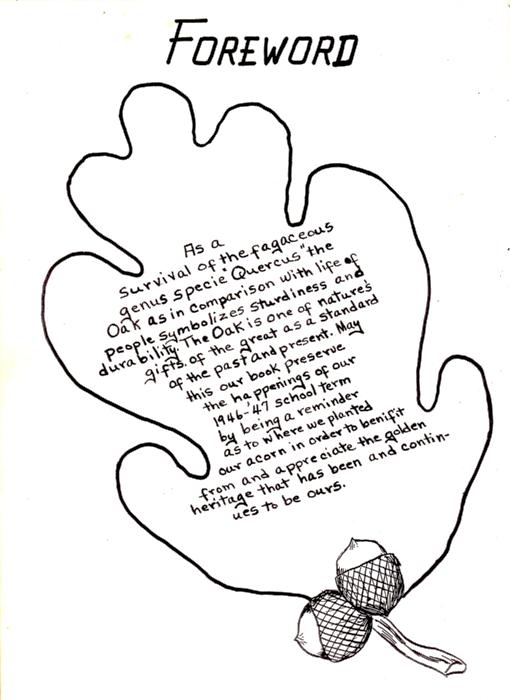 FOREWORD
As a
survival of the fagaceous
genus specie "Quercus" the
Oak as in comparison with life of
people symbolizes sturdiness and
durability. The Oak is one of nature's
gifts of the great as a standard
of the past and present. May
this our book preserve
the happenings of our
1946-'47 school term
by being a reminder
as to where we planted
our acorn in order to benifit
from and appreciate the golden
heritage that has been and contin-
ues to be ours.